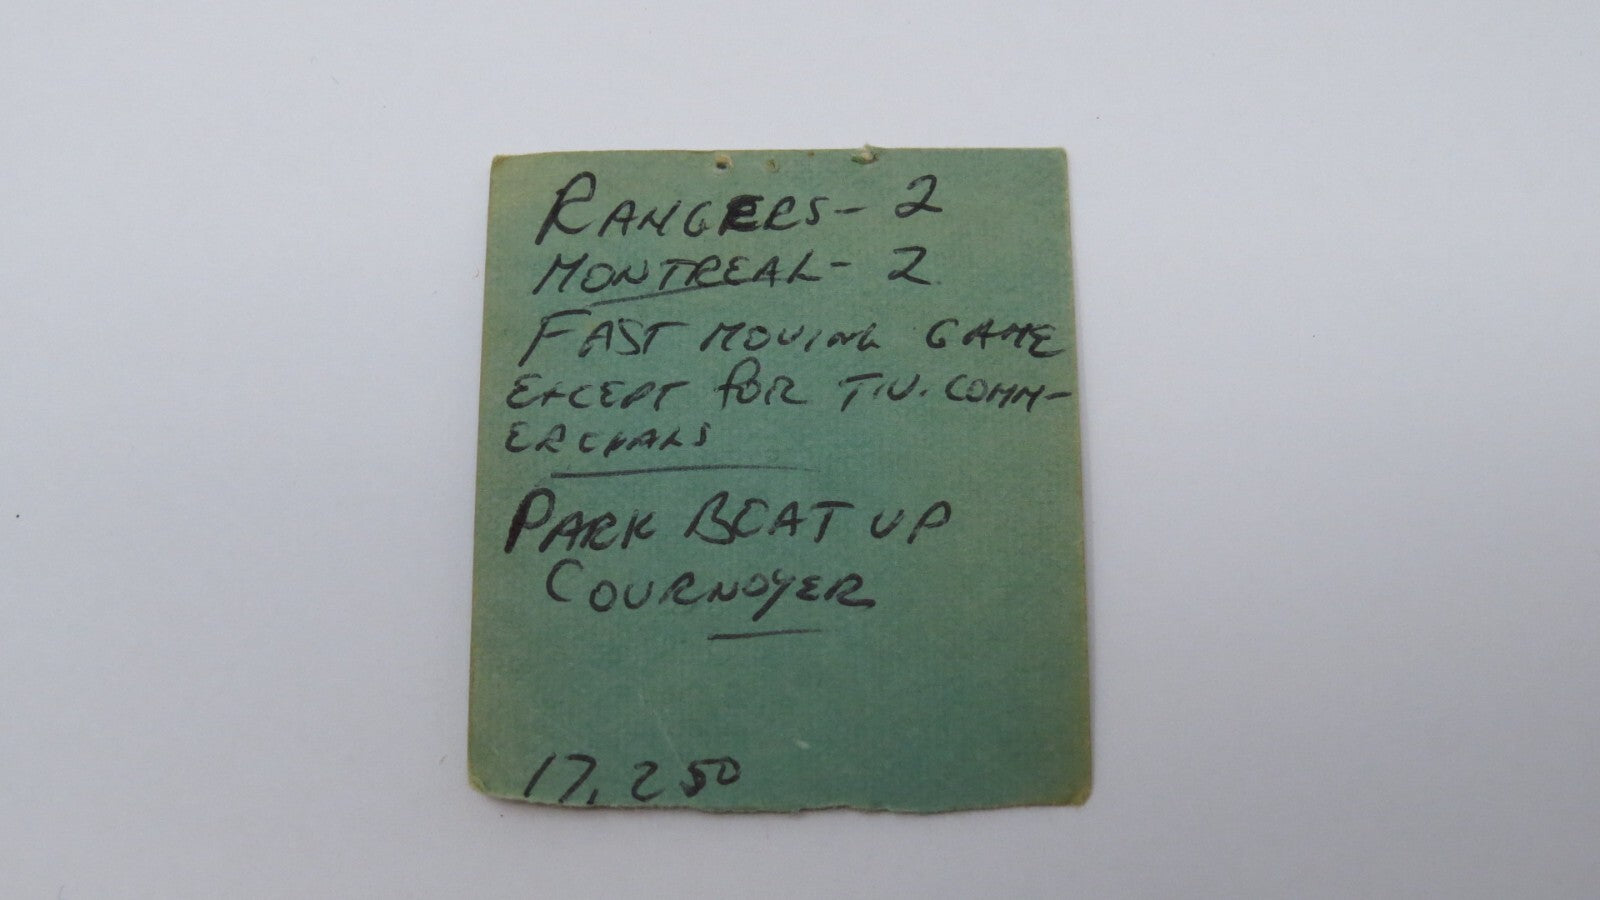 RANGERS - 2
MONTREAL - 2
FAST MOVING GAME
EXCEPT FOR T.V. COMM-
ERCIALS
PARK BEAT UP
COURNOYER
17,250